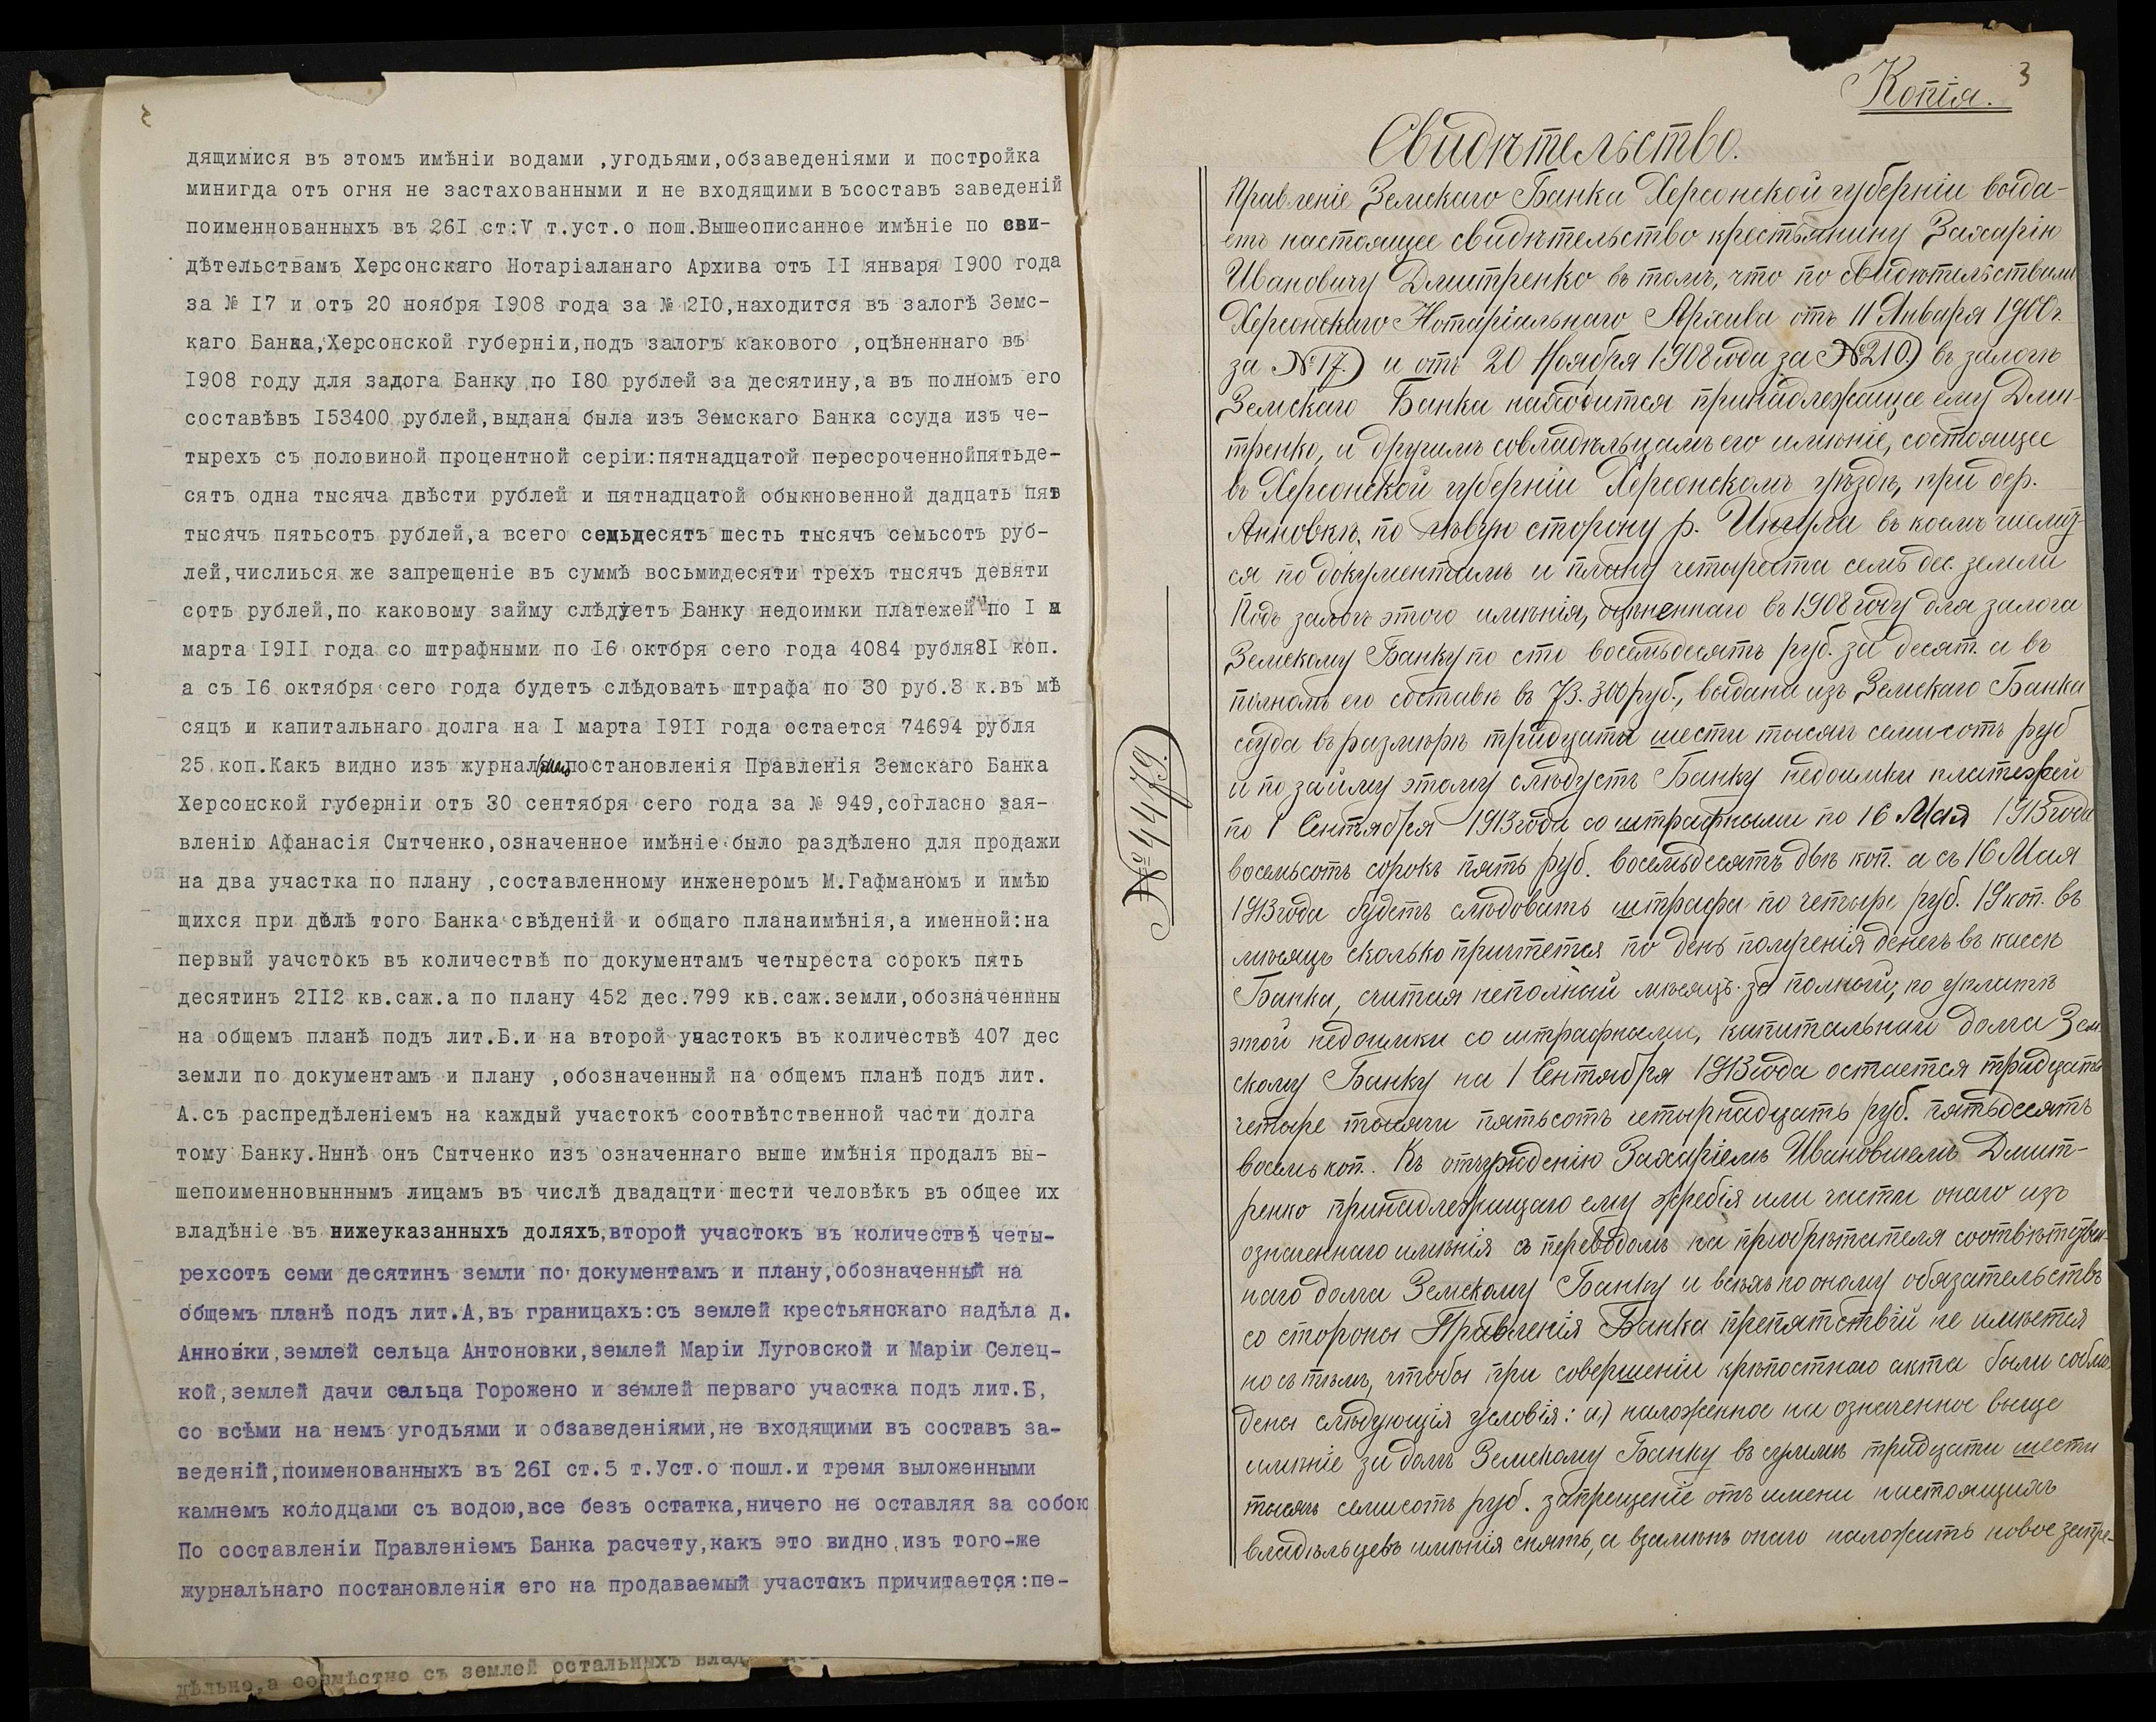 дящимися въ этомъ имѣніи водами ,угодьями,обзаведеніями и постройка
минигда отъ огня не застахованными и не входящими въсоставъ заведеній
поименнованныхъ въ 26I ст:V т.уст.о пош.Вышеописанное имѣніе по сви-
дѣтельствамъ Херсонскаго Нотаріаланаго Архива отъ II января I900 года
за № I7 и отъ 20 ноября I908 года за № 2I0,находится въ залогѣ Земс-
каго Банка,Херсонской губерніи,подъ залогъ какового ,оцѣненнаго въ
I908 году для задога Банку по I80 рублей за десятину,а въ полномъ его
составѣвъ I53400 рублей,выдана была изъ Земскаго Банка ссуда изъ че-
тырехъ съ половиной процентной серіи:пятнадцатой пересроченнойпятьде-
сятъ одна тысяча двѣсти рублей и пятнадцатой обыкновенной дадцать пят
тысячъ пятьсотъ рублей,а всего седьдесятъ шесть тысячъ семьсотъ руб-
лей,числиься же запрещеніе въ суммѣ восьмидесяти трехъ тысячъ девяти
сотъ рублей,по каковому займу слѣдуетъ Банку недоимки платежей по I
марта I9II года со штрафными по I6 октбря сего года 4084 рубля8I коп.
а съ I6 октября сего года будетъ слѣдовать штрафа по 30 руб.3 к.въ мѣ
сяцъ и капитальнаго долга на I марта I9II года остается 74694 рубля
25 коп.Какъ видно изъ журнал постановленія Правленія Земскаго Банка
Херсонской губерніи отъ 30 сентября сего года за № 949,согласно зая-
вленію Афанасія Сытченко,означенное имѣніе было раздѣлено для продажи
на два участка по плану ,составленному инженеромъ М.Гафманомъ и имѣю
щихся при дѣлѣ того Банка свѣденій и общаго планаимѣнія,а именной:на
первый уачстокъ въ количествѣ по документамъ четыреста сорокъ пять
десятинъ 2II2 кв.саж.а по плану 452 дес.799 кв.саж.земли,обозначеннны
на общемъ планѣ подъ лит.Б.и на второй участокъ въ количествѣ 407 дес
земли по документамъ и плану ,обозначенный на общемъ планѣ подъ лит.
А.съ распредѣленіемъ на каждый участокъ соотвѣтственной части долга
тому Банку.Нынѣ онъ Сытченко изъ означеннаго выше имѣнія продалъ вы-
шепоименновыннымъ лицамъ въ числѣ двадацти шести человѣкъ въ общее их
владѣніе въ нижеуказанныхъ доляхъ,второй участокъ въ количествѣ четы-
рехсотъ семи десятинъ земли по документамъ и плану,обозначенный на
общемъ планѣ подъ лит.А,въ границахъ:съ землей крестьянскаго надѣла д.
Анновки,землей сельца Антоновки,землей Маріи Луговской и Маріи Селец-
кой,землей дачи сельца Горожено и землей перваго участка подъ лит.Б,
со всѣми на немъ угодьями и обзаведеніями,не входящими въ составъ за-
веденій,поименованныхъ въ 26I ст.5 т.Уст.о пошл.и тремя выложенными
камнемъ колодцами съ водою,все безъ остатка,ничего не оставляя за собою
По составленіи Правленіемъ Банка расчету,какъ это видно изъ того-же
журнальнаго постановленія его на продаваемый участокъ причитается:пе-
дѣльно,а совмѣстно съ землей остальныхъ
3
Копія.
Свидѣтельство.
№ 4479.
Правленіе Земскаго Банка Херсонской губерніи выда-
етъ настоящее свидѣтельство крестьянину Захарію
Ивановичу Дмитренко въ томъ, что по свидѣтельствамъ
Херсонскаго Нотаріальнаго Архива отъ 11 Января 1900 г.
за №17.) и отъ 20 Ноября 1908 года за №210.) въ залогѣ
Земскаго Банка находится принадлежащее ему Дми-
тренко, и другимъ совладѣльцамъ его имѣніе, состоящее
въ Херсонской губерніи Херсонскомъ уѣздѣ, при дер.
Анновкѣ, по лѣвую сторону р. Ингула въ коемъ числит-
ся по документамъ и плану четыреста семь дес. земли
Подъ залогъ этого имѣнія, оцѣненнаго въ 1908 году для залога
Земскому Банку по сто восемьдесятъ руб. за десят. а въ
полномъ его составѣ въ 73.300 руб., выдана изъ Земскаго Банка
ссуда въ размѣрѣ тридцати шести тысячъ семисотъ руб
и по займу этому слѣдуетъ Банку недоимки платежей
по 1 Сентября 1913 года со штрафными по 16 Мая 1913 года
восемьсотъ сорокъ пять руб. восемьдесятъ двѣ коп. а съ 16 Мая
1913 года будетъ слѣдовать штрафа по четыре руб. 19 коп. въ
мѣсяцъ сколько причтется по день полученія денегъ въ кассѣ
Банка, считая неполный мѣсяцъ за полный; по уплатѣ
этой недоимки со штрафными, капитальнаго долга Зем
скому Банку на 1 Сентября 1913 года остается тридцать
четыре тысячи пятьсотъ четырнадцать руб. пятьдесятъ
восемь коп. Къ отчужденію Захаріемъ Ивановичемъ Дмит-
ренко принадлежащаго ему жребія или части онаго изъ
означеннаго имѣнія съ переводомъ на пріобрѣтателя соотвѣтствен-
наго долга Земскому Банку и всѣхъ по оному обязательствъ
со стороны Правленія Банка препятствій не имѣется
но съ тѣмъ, чтобы при совершеніи крѣпостнаго акта были соблю
дены слѣдующія условія: а) наложенное на означенное выше
имѣніе за долгъ Земскому Банку въ суммѣ тридцати шести
тысячъ семисотъ руб. запрещеніе отъ имени настоящихъ
владѣльцевъ имѣнія снять, а взамѣнъ онаго наложить новое запре-